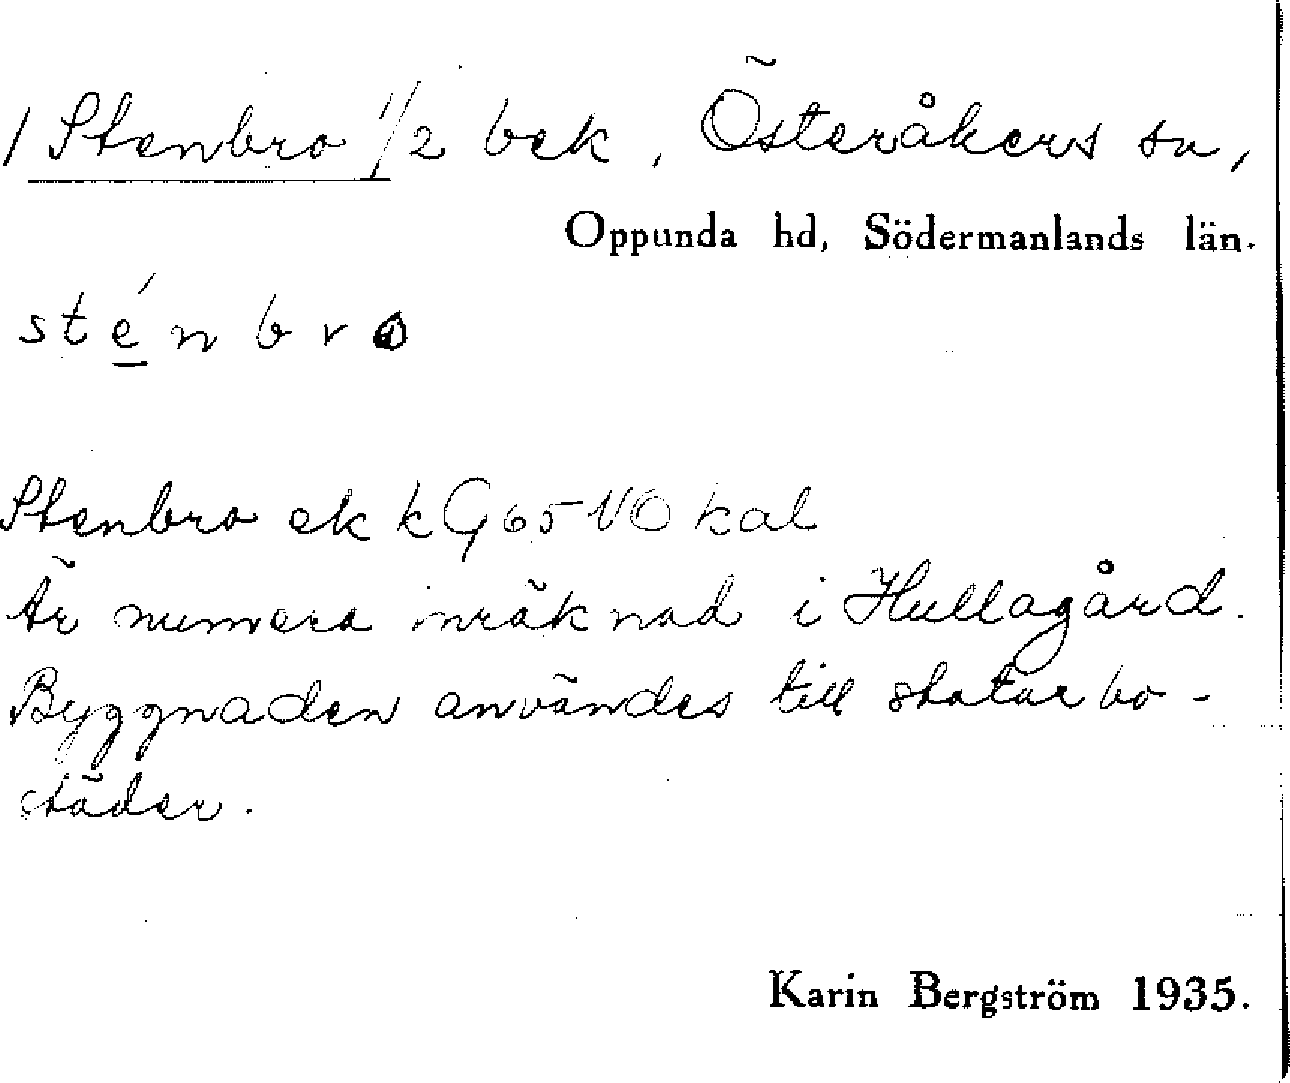 1 Stenbro 1/2 bek, Österåkers sn,
Oppunda hd, Södermanlands län.
sténbro
Stenbro ek kG65 VO kal
Är numera inräknad i Hullagård.
Byggnaden användes till statarbo-
städer.
Karin Bergström 1935.